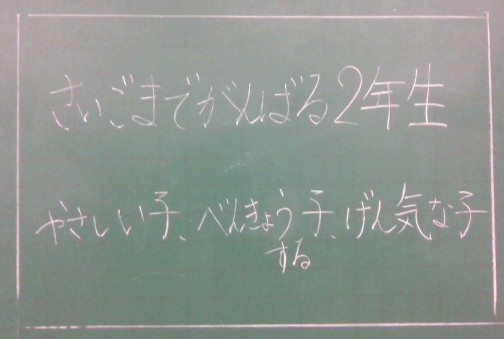 さいごまでがんばる2年生
やさしい子、べんきょう子、げん気な子
する